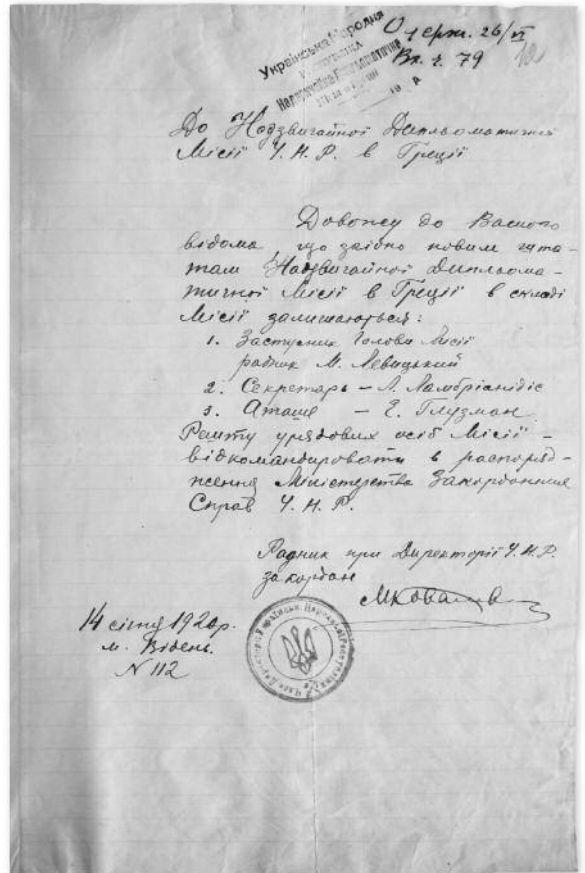 Українська Народна
Республіка
Надзвичайна Дипломатична
Місія в Греції
19 р.
Одерж. 26/VI
Вх. ч. 79
12
До Надзвичайної Дипльоматичної
Місії У.Н.Р. в Греції
Довожу до Вашого
відома, що згідно новим шта-
там Надзвичайної Дипльома-
тичної Місії в Греції в складі
Місії залишаються:
1. Заступник Голови Місії
радник М. Левицький
2. Секретарь – Л. Ламбріанідіс
3. Аташе – Е. Глузман.
Решту урядових осіб Місії –
відкомандировати в распоряд-
ження Міністерства Закордонних
Справ У.Н.Р.
Радник при Директорії У.Н.Р.
закордон
МКовал
14 січня 1920р.
м. Відень.
N 112